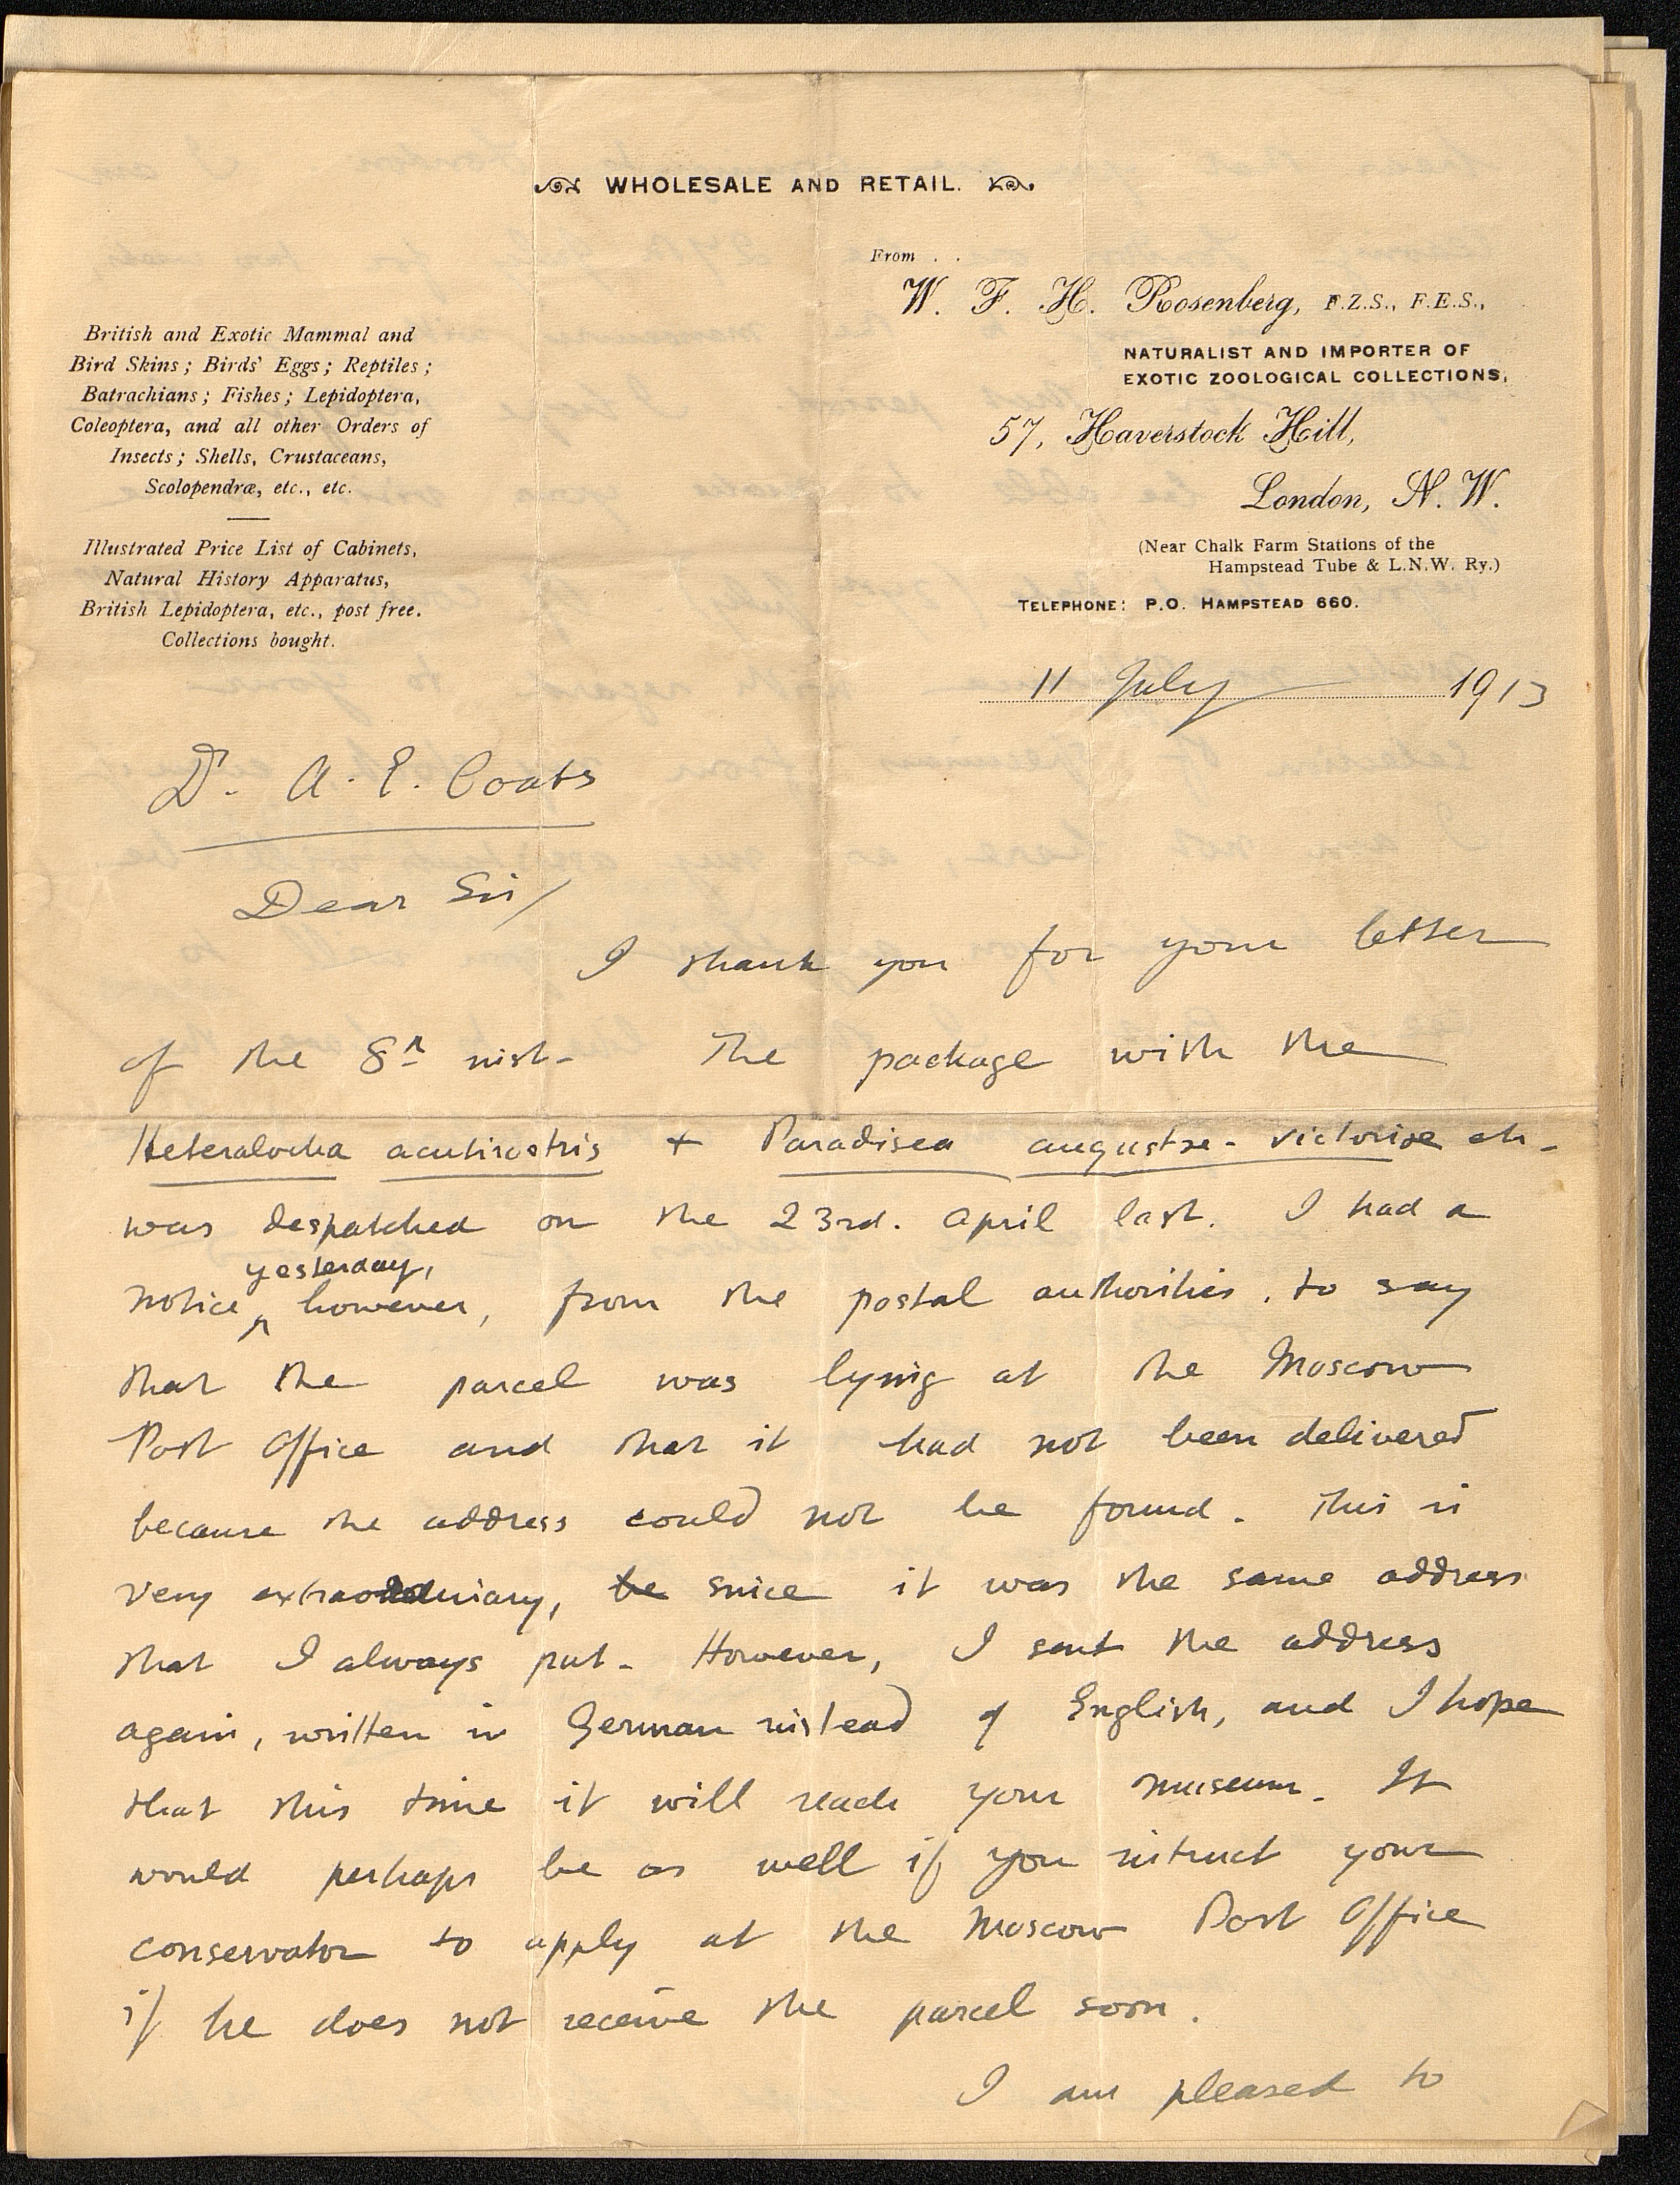 WHOLESALE AND RETAIL.
From . .
W. F. H. Rosenberg, F.Z.S., F.E.S.,
NATURALIST AND IMPORTER OF
EXOTIC ZOOLOGICAL COLLECTIONS,
57, Haverstock Hill,
London, N. W.
(Near Chalk Farm Stations of the
Hampstead Tube & L.N.W. Ry.)
TELEPHONE: P.O. HAMPSTEAD 660.
British and Exotic Mammal and
Bird Skins; Birds' Eggs; Reptiles;
Batrachians; Fishes; Lepidoptera,
Coleoptera, and all other Orders of
Insects; Shells, Crustaceans,
Scolopendræ, etc., etc.
Illustrated Price List of Cabinets,
Natural History Apparatus,
British Lepidoptera, etc., post free.
Collections bought.
11 July 1913
Dr. A. E. Coats
Dear Sir/
I thank you for your letter
of the 8th inst. The package with the
Heteralocha acutirostris + Paradisea augustæ-victoriæ etc.
was despatched on the 23rd. April last. I had a
yesterday,
notice ^ however, from the postal authorities, to say
that the parcel was lying at the Moscow
Post Office and that it had not been delivered
because the address could not be found. This is
very extraordinary, be since it was the same address
that I always put. However, I sent the address
again, written in German instead of English, and I hope
that this time it will reach your museum. It
would perhaps be as well if you intruct your
conservator to apply at the Moscow Post Office
if he does not receive the parcel soon.
I am pleased to